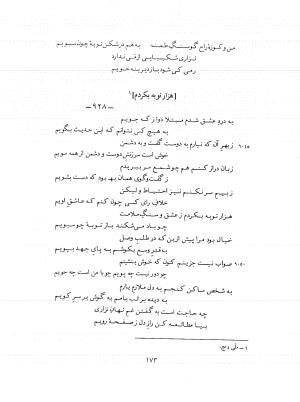 من و کوزهٔ راح گو سنگ طعنه به هم در شکن توبه چون سبویم
نزاری شکیبایی از می ندارد
رمی کی شود باز دیرینه خویم
[هزار توبه بکردم]
ـ ۹۲۸ ـ
به درد عشق شدم مبتلا دوا ز که جویم
به هیچ کس نتوانم که این حدیث بگویم
۱۰۴۵ ز بهر آن که نیارم به دوست گفت و به دشمن
خوش است سرزنش دوست و دشمن از همه سویم
زبان دراز کنم هم چو شمع سر ببریدم
ز گفت‌وگوی همان به بود که دست بشویم
ز بیم سر نکنم نیز احتیاط ولیکن
خلاف رای کی چون کنم که عاشق اویم
هزار توبه بکردم ز عشق و سنگ ملامت
چو باد می‌شکند باز توبه چو سبویم
خیال بود مرا پیش ازین که در طلب وصل
به قدر وسع بکوشم به پای جهد بپویم
۱۰۵۰ صواب نیست جزینم کنون که خوش بنشینم
چو دور نیست چه پویم چو با من است چه جویم
به شخص ساکن کنجم به دل ملازم یارم
به دیده بر لب بامم به گوش بر سر کویم
چه حاجت است به گفتن غم نهان نزاری
بیا مطالعه کن راز دل ز صفحهٔ رویم
۱ ـ
۱۷۳